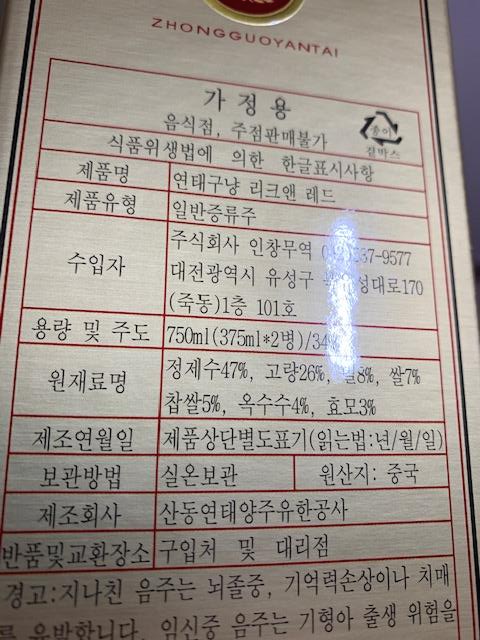 ZHONGGUOYANTAI
가정용
음식점, 주점판매불가
종이
겉박스
식품위생법에 의한 한글표시사항
제품명 연태구냥 리크앤 레드
제품유형 일반증류주
수입자 주식회사 인창무역 37-9577
대전광역시 유성구 대로170
(죽동)1층 101호
용량 및 주도 750ml(375ml*2병)/34
원재료명 정제수47%, 고량26%, 8%, 쌀7%
찹쌀5%, 옥수수4%, 효모3%
제조연월일 제품상단별도표기(읽는법:년/월/일)
보관방법 실온보관 원산지: 중국
제조회사 산동연태양주유한공사
반품및교환장소 구입처 및 대리점
경고:지나친 음주는 뇌졸중, 기억력손상이나 치매
를 유발합니다. 임신중 음주는 기형아 출생 위험을